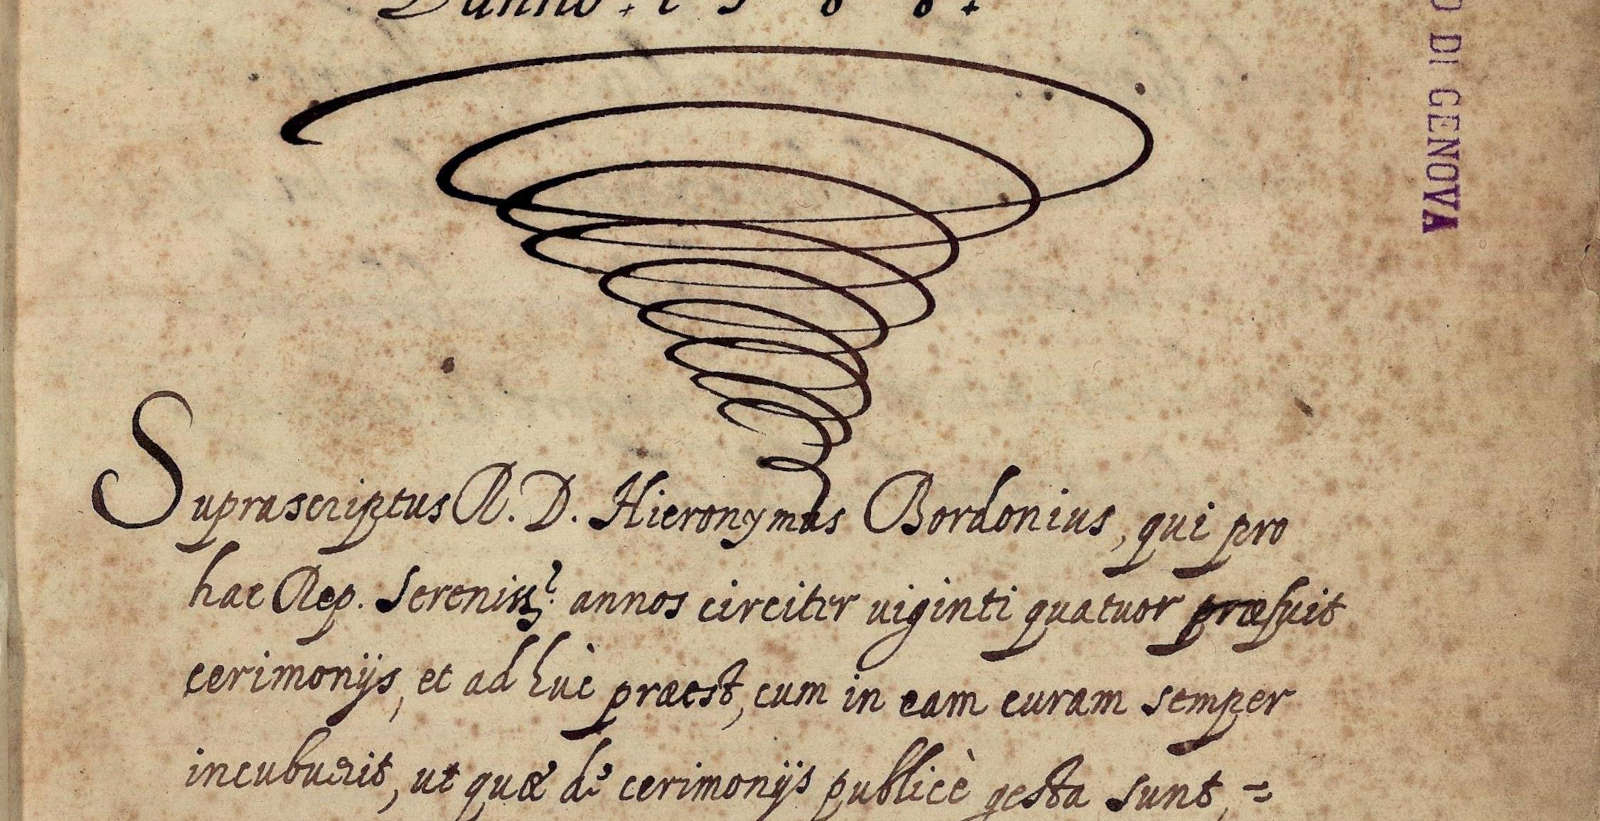 L'anno . 1 5 8 8 .
O DI GENOVA
Suprascriptus R. D. Hieronymus Bordonius, qui pro
hac Rep. sereniss.ª annos circiter viginti quatuor præfuit
cerimonijs, et ad huc præest, cum in eam curam semper
incuburit, ut quæ d.s cerimonijs publicè gesta sunt, =